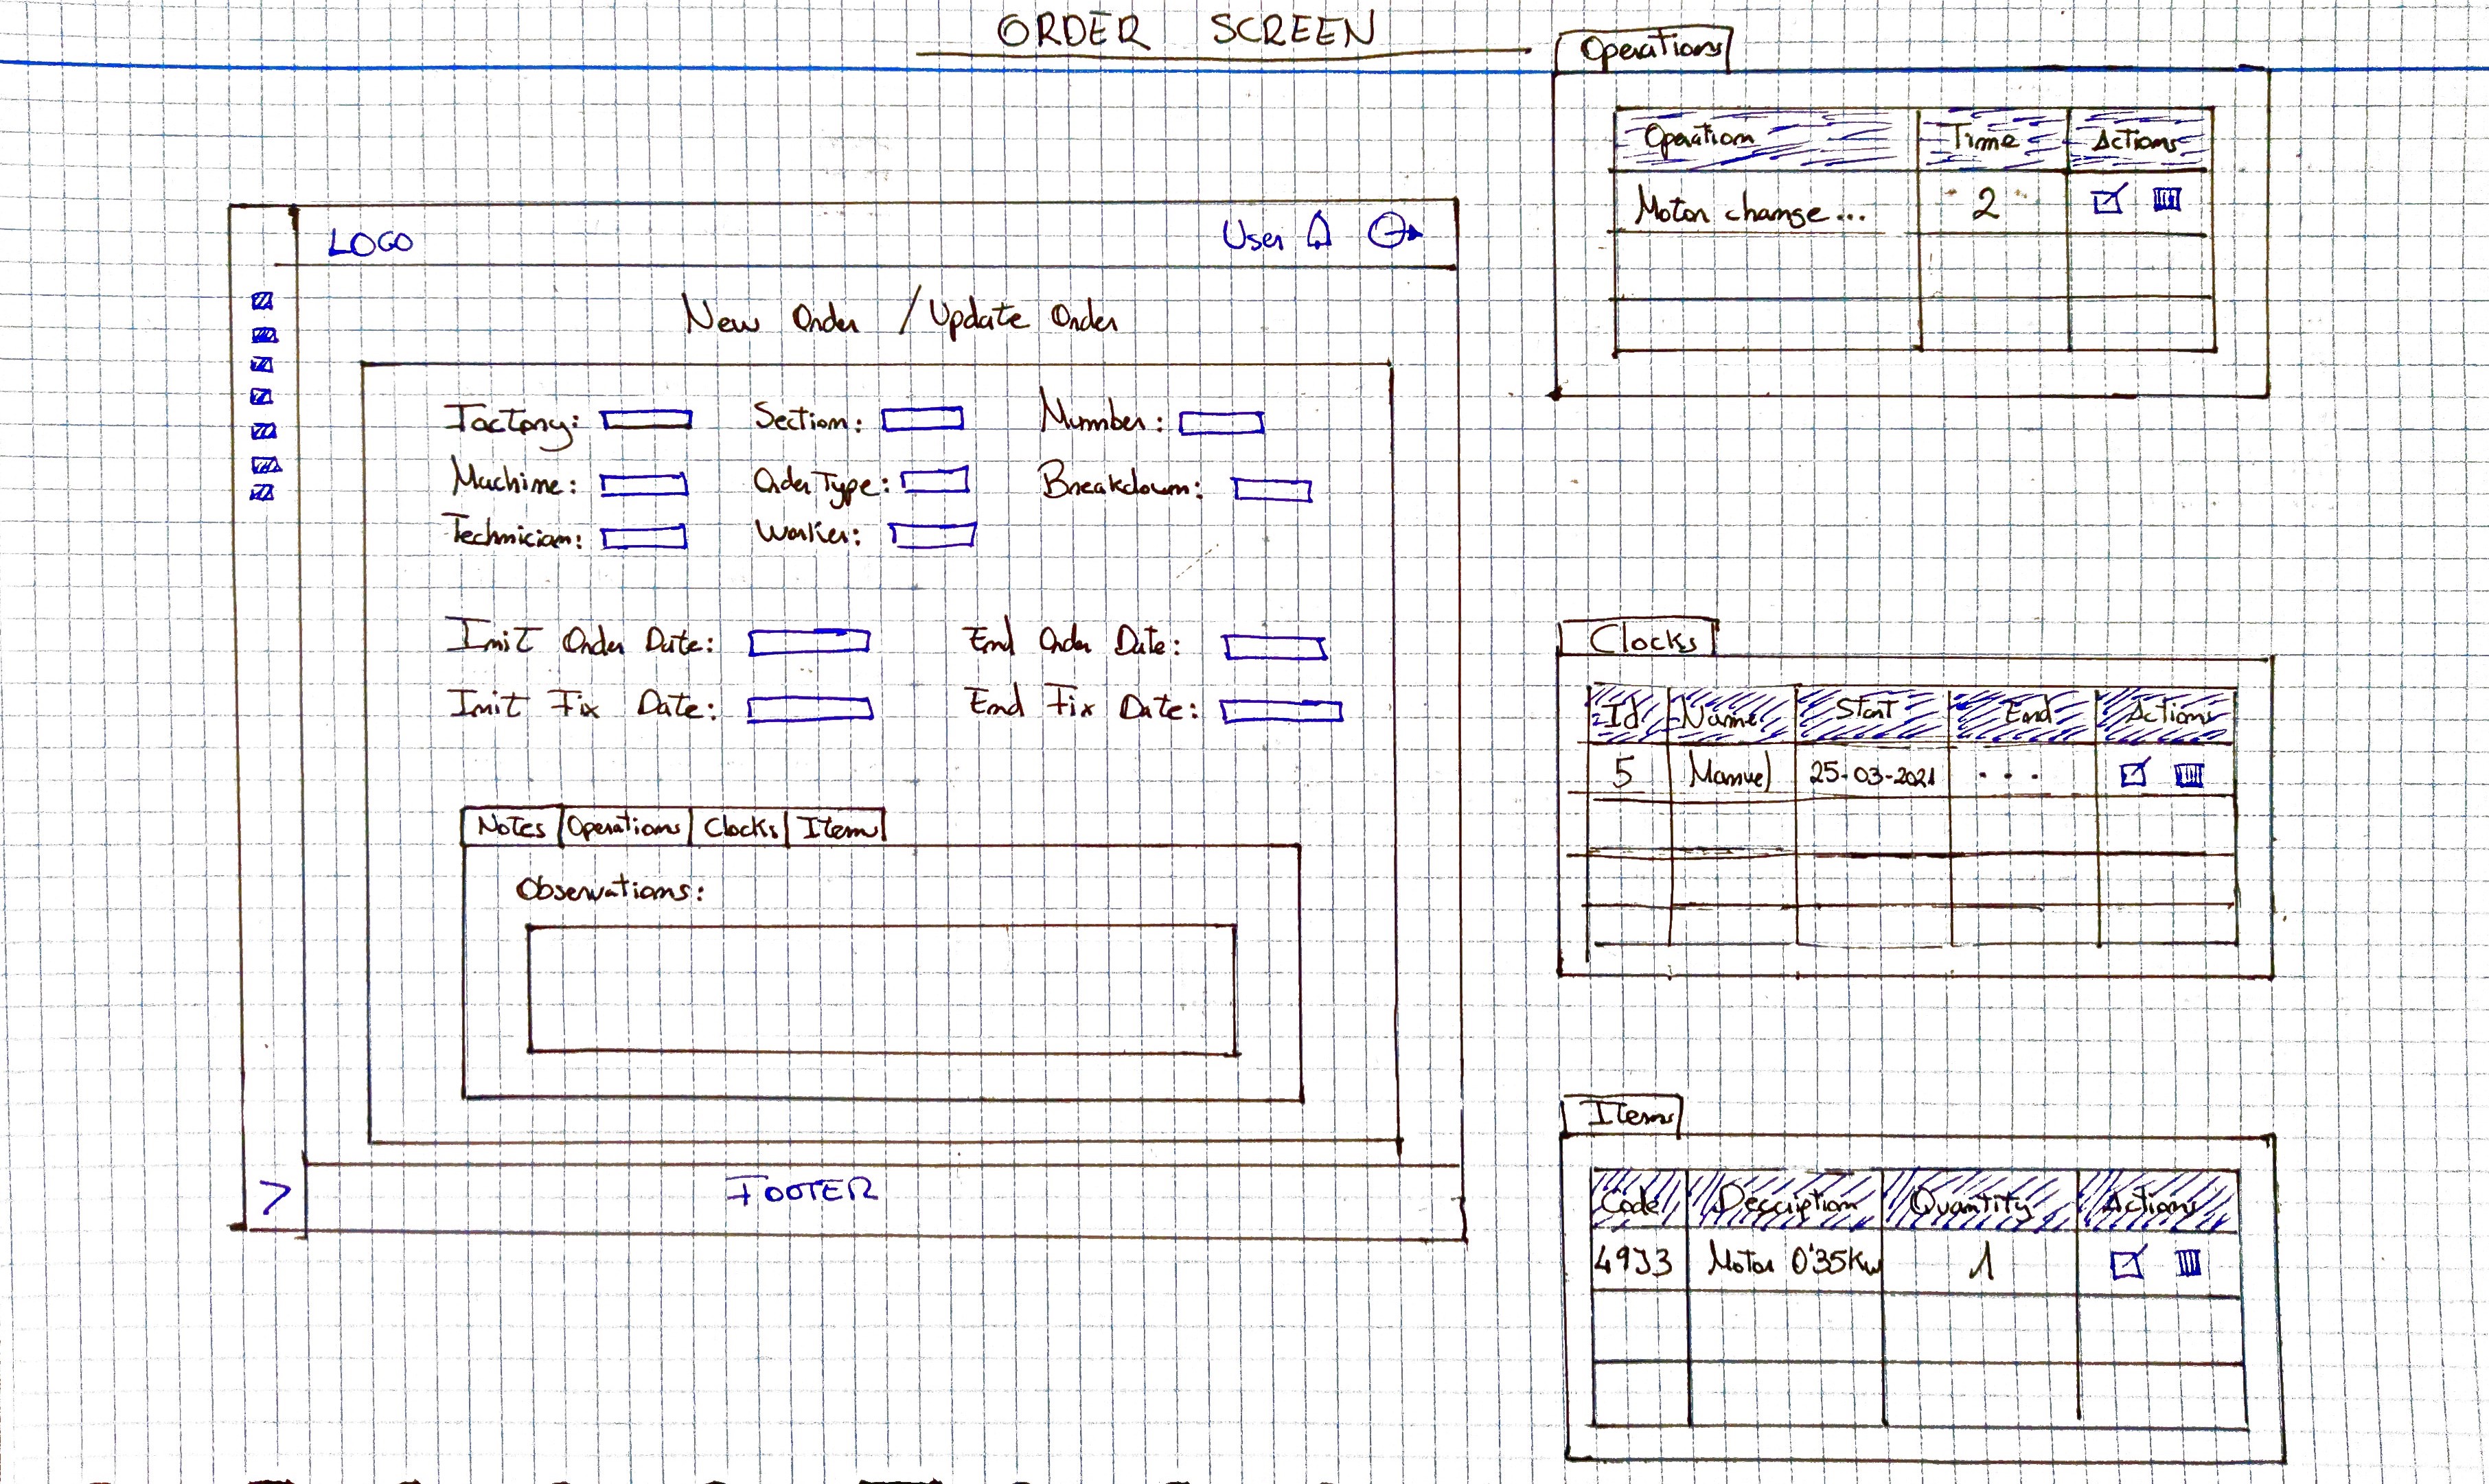 ORDER SCREEN
LOGO
User
New Order / Update Order
Factory:
Section:
Number:
Machine:
Order Type:
Breakdown:
Technician:
Worker:
Init Order Date:
End Order Date:
Init Fix Date:
End Fix Date:
Notes
Operations
Clocks
Item
Observations:
>
FOOTER
Operations
Operation
Time
Actions
Motor change...
2
Clocks
Id
Name
Start
End
Actions
5
Manuel
25-03-2021
...
Items
Code
Description
Quantity
Actions
4933
Motor 0'35Kw
1